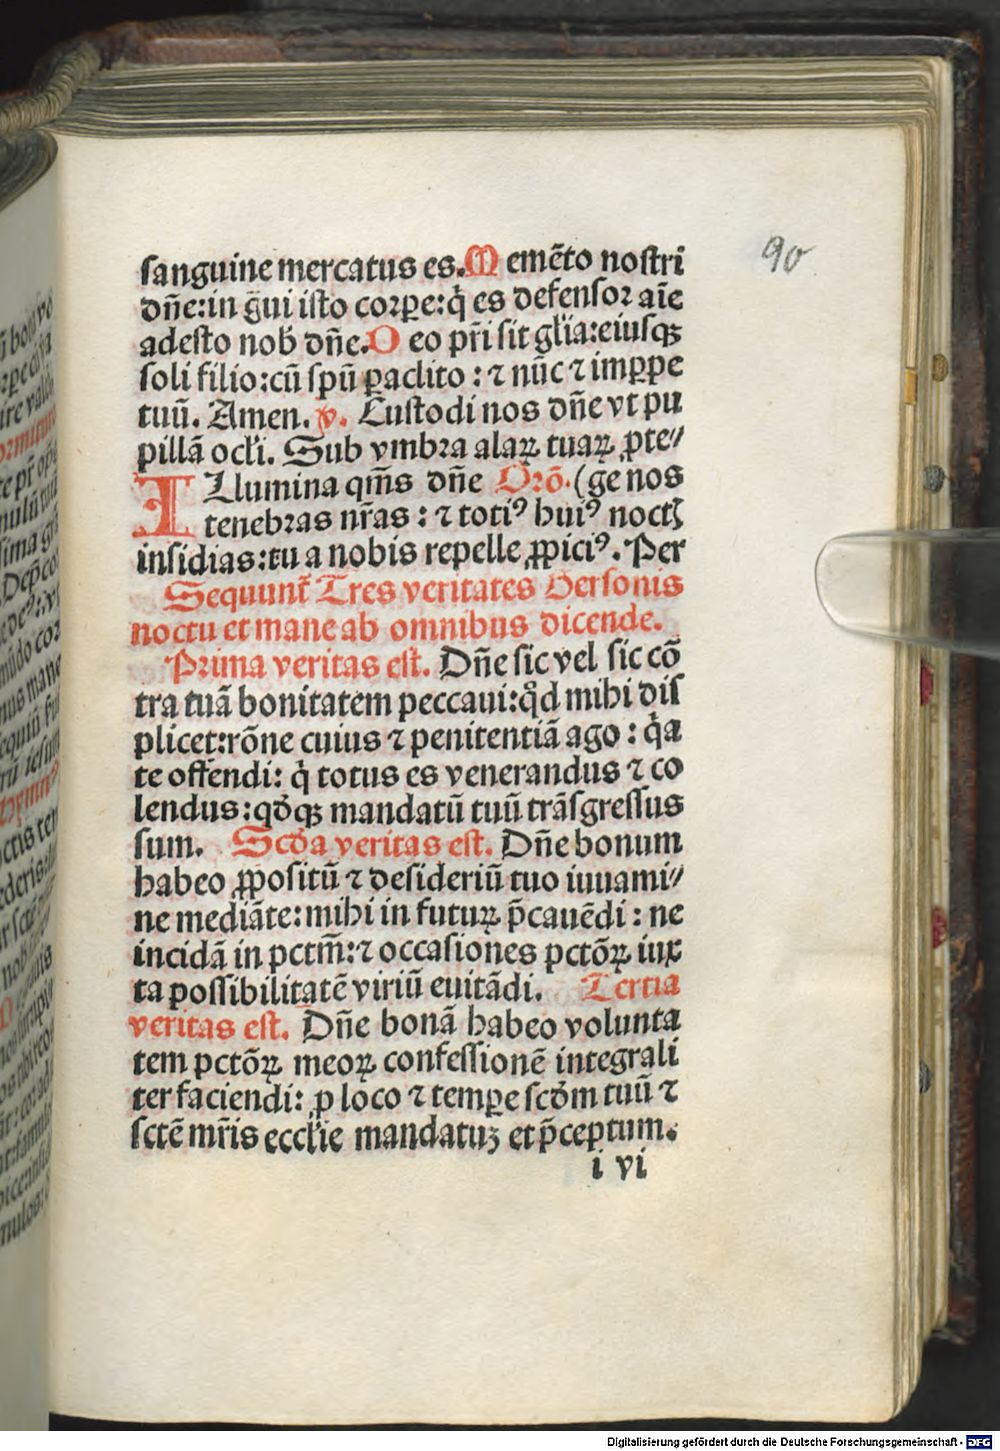 sanguine mercatus es. Memẽto nostri
dñe: in g̃ui isto corꝑe: q̇ es defensor aĩe
adesto nob̃ dñe. Deo pr̃i sit gl̃ia: eiusqꝫ
soli filio: cũ spũ ꝑaclito: ⁊ nũc ⁊ imꝑpe
tuũ. Amen. ꝟ. Custodi nos dñe vt pu
pillã ocl̃i. Sub vmbra alaꝝ tuaꝝ ꝓte⸗
Illumina qm̃s dñe Orõ. (ge nos
tenebras nr̃as: ⁊ totiꝰ huiꝰ noctꝭ
insidias: tu a nobis repelle ꝓpiciꝰ. Per
Sequunt̃ Tres veritates Personis
noctu et mane ab omnibus dicende.
Prima veritas est. Dñe sic vel sic cõ
tra tuã bonitatem peccaui: qd̃ mihi dis
plicet: rõne cuius ⁊ penitentiã ago: q̇a
te offendi: q̇ totus es venerandus ⁊ co
lendus: qd̃qꝫ mandatũ tuũ trãsgressus
sum. Scd̃a veritas est. Dñe bonum
habeo ꝓpositũ ⁊ desideriũ tuo iuuami⸗
ne mediãte: mihi in futuꝝ p̃cauẽdi: ne
incidã in pctm̃: ⁊ occasiones pctõꝝ iux
ta possibilitatẽ viriũ euitãdi. Tertia
veritas est. Dñe bonã habeo volunta
tem pctõꝝ meoꝝ confessionẽ integrali
ter faciendi: ꝓ loco ⁊ temꝑe scd̃m tuũ ⁊
sctẽ mr̃is eccl̃ie mandatuꝫ et p̃ceptum.
i vi
90
Digitalisierung gefördert durch die Deutsche Forschungsgemeinschaft - DFG